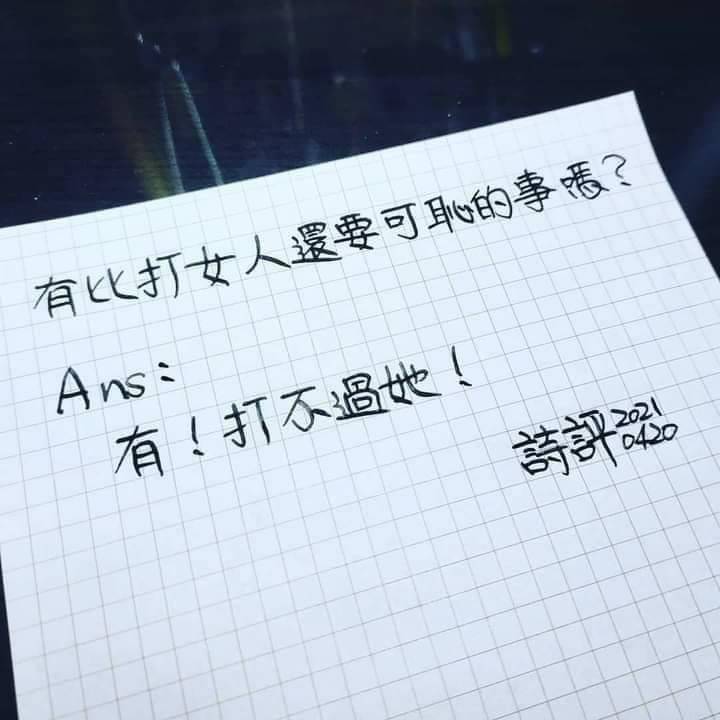 有比打女人還要可恥的事嗎?
Ans:
有!打不過她!
詩評 2021
0420